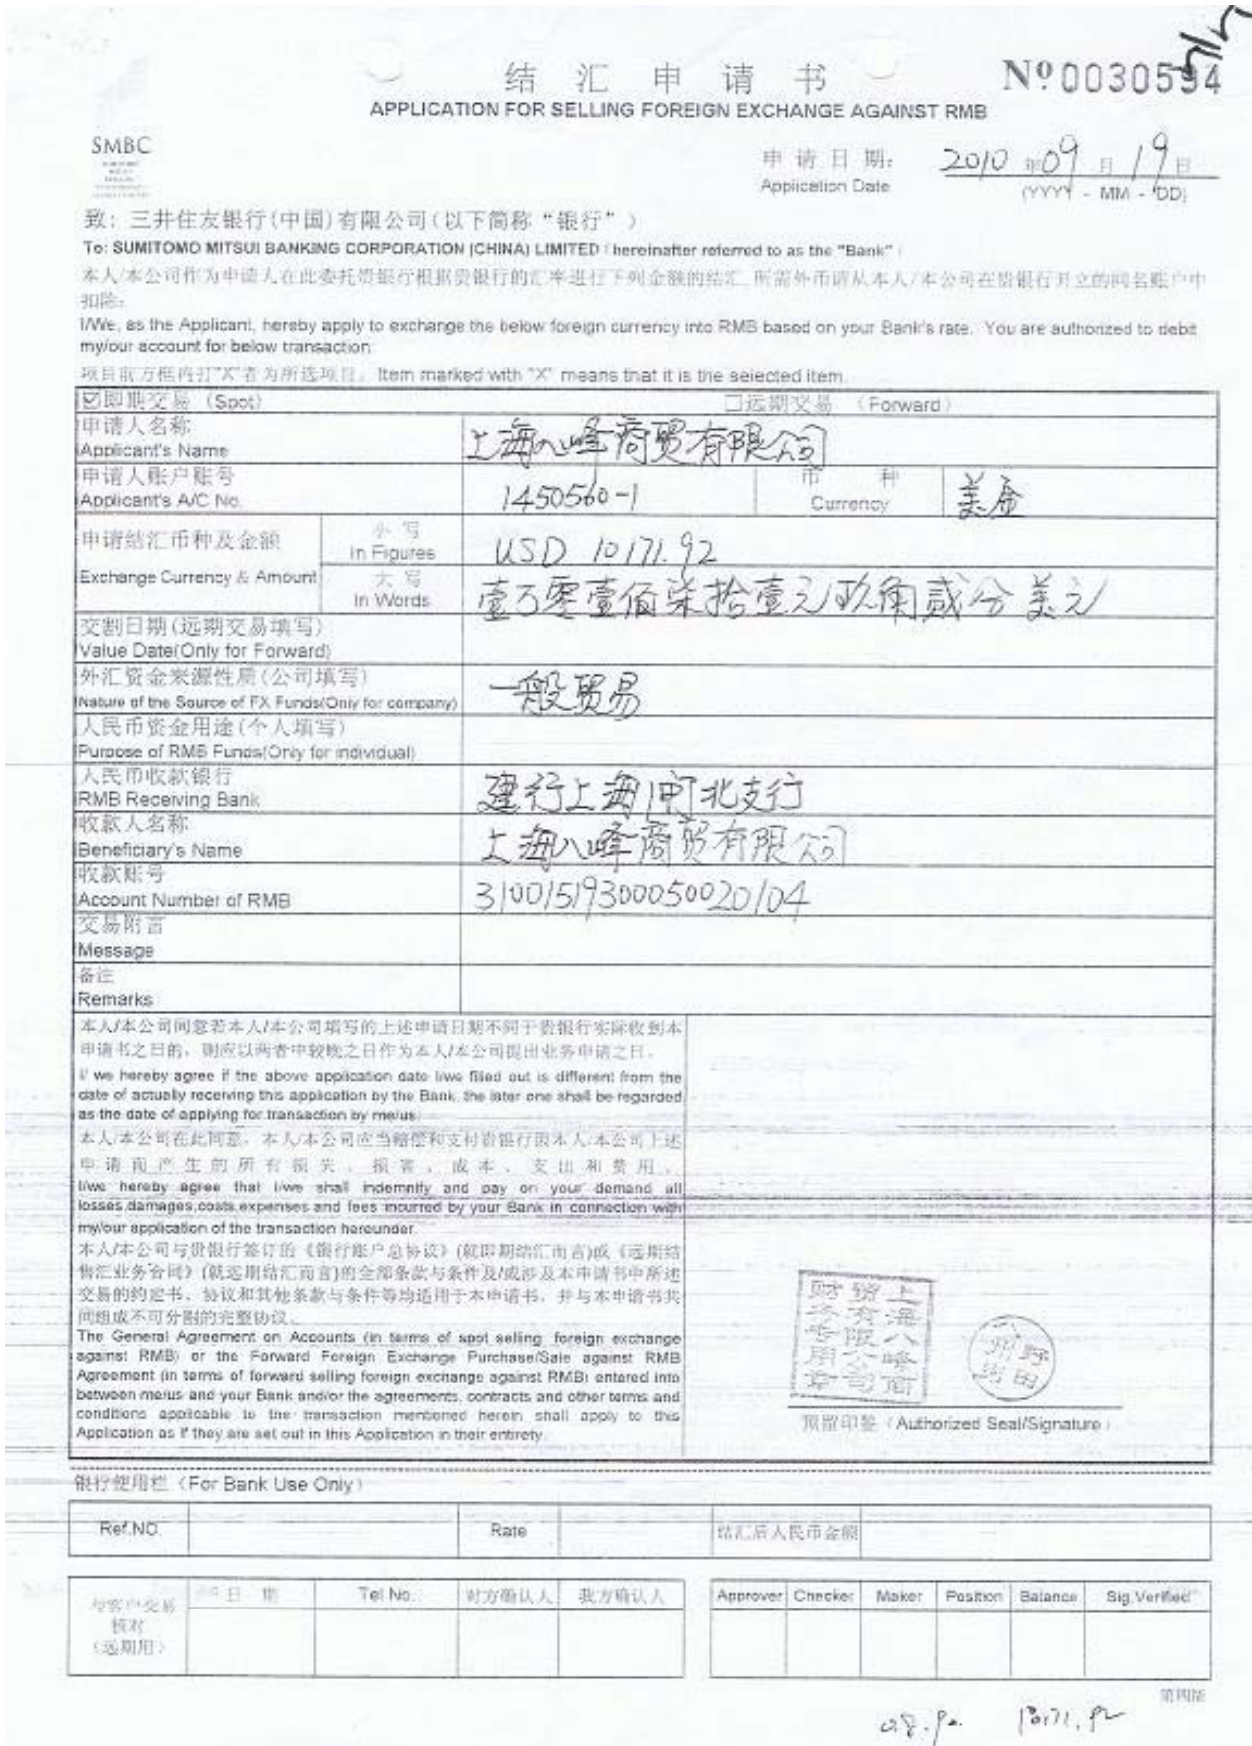 结汇申请书
APPLICATION FOR SELLING FOREIGN EXCHANGE AGAINST RMB
Nº 0030594
SMBC
申请日期: 2010 年 09 月 19 日
Application Date (YYYY - MM - DD)
致: 三井住友银行(中国)有限公司(以下简称“银行”)
To: SUMITOMO MITSUI BANKING CORPORATION (CHINA) LIMITED (hereinafter referred to as the "Bank")
本人/本公司作为申请人在此委托贵银行根据贵银行的汇率进行下列金额的结汇,所需外币请从本人/本公司在贵银行开立的同名账户中
扣除:
I/We, as the Applicant, hereby apply to exchange the below foreign currency into RMB based on your Bank's rate. You are authorized to debit
my/our account for below transaction
项目前方框内打"X"者为所选项目. Item marked with "X" means that it is the selected item.
☑即期交易 (Spot) □远期交易 (Forward)
申请人名称
Applicant's Name
上海八峰商贸有限公司
申请人账户账号
Applicant's A/C No.
1450560-1
币种
Currency
美金
申请结汇币种及金额
Exchange Currency & Amount
小写
In Figures
USD 10171.92
大写
In Words
壹万零壹佰柒拾壹元玖角贰分美元
交割日期(远期交易填写)
Value Date(Only for Forward)
外汇资金来源性质(公司填写)
Nature of the Source of FX Funds(Only for company)
一般贸易
人民币资金用途(个人填写)
Purpose of RMB Funds(Only for individual)
人民币收款银行
RMB Receiving Bank
建行上海闸北支行
收款人名称
Beneficiary's Name
上海八峰商贸有限公司
收款账号
Account Number of RMB
31001519300050020104
交易附言
Message
备注
Remarks
本人/本公司同意若本人/本公司填写的上述申请日期不同于贵银行实际收到本
申请书之日的,则应以两者中较晚之日作为本人/本公司提出业务申请之日.
I/ we hereby agree if the above application date I/we filled out is different from the
date of actually receiving this application by the Bank, the later one shall be regarded
as the date of applying for transaction by me/us
本人/本公司在此同意,本人/本公司应当赔偿和支付贵银行因本人/本公司上述
申请而产生的所有损失、损害、成本、支出和费用.
I/we hereby agree that I/we shall indemnify and pay on your demand all
losses,damages,costs,expenses and fees incurred by your Bank in connection with
my/our application of the transaction hereunder.
本人/本公司与贵银行签订的《银行账户总协议》(就即期结汇而言)或《远期结
售汇业务合同》(就远期结汇而言)的全部条款与条件及/或涉及本申请书中所述
交易的约定书、协议和其他条款与条件等均适用于本申请书,并与本申请书共
同组成不可分割的完整协议.
The General Agreement on Accounts (in terms of spot selling foreign exchange
against RMB) or the Forward Foreign Exchange Purchase/Sale against RMB
Agreement (in terms of forward selling foreign exchange against RMB) entered into
between me/us and your Bank and/or the agreements, contracts and other terms and
conditions applicable to the transaction mentioned herein shall apply to this
Application as if they are set out in this Application in their entirety.
上海八峰商
贸有限公司
财务专用章
预留印鉴 (Authorized Seal/Signature)
银行使用栏 (For Bank Use Only)
Ref.NO. Rate 结汇后人民币金额
与客户交易
核对
(远期用)
日期 Tel No. 对方确认人 我方确认人
Approver Checker Maker Position Balance Sig.Verified
第四联